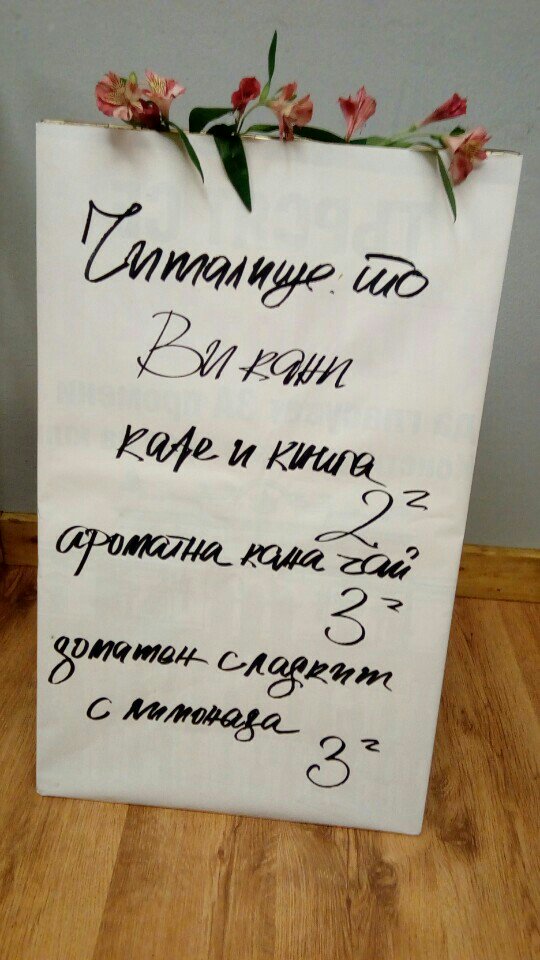 Читалище.то
Ви кани
кафе и книга
2²
ароматна кана чай
3²
доматен сладкиш
с лимонада
3²